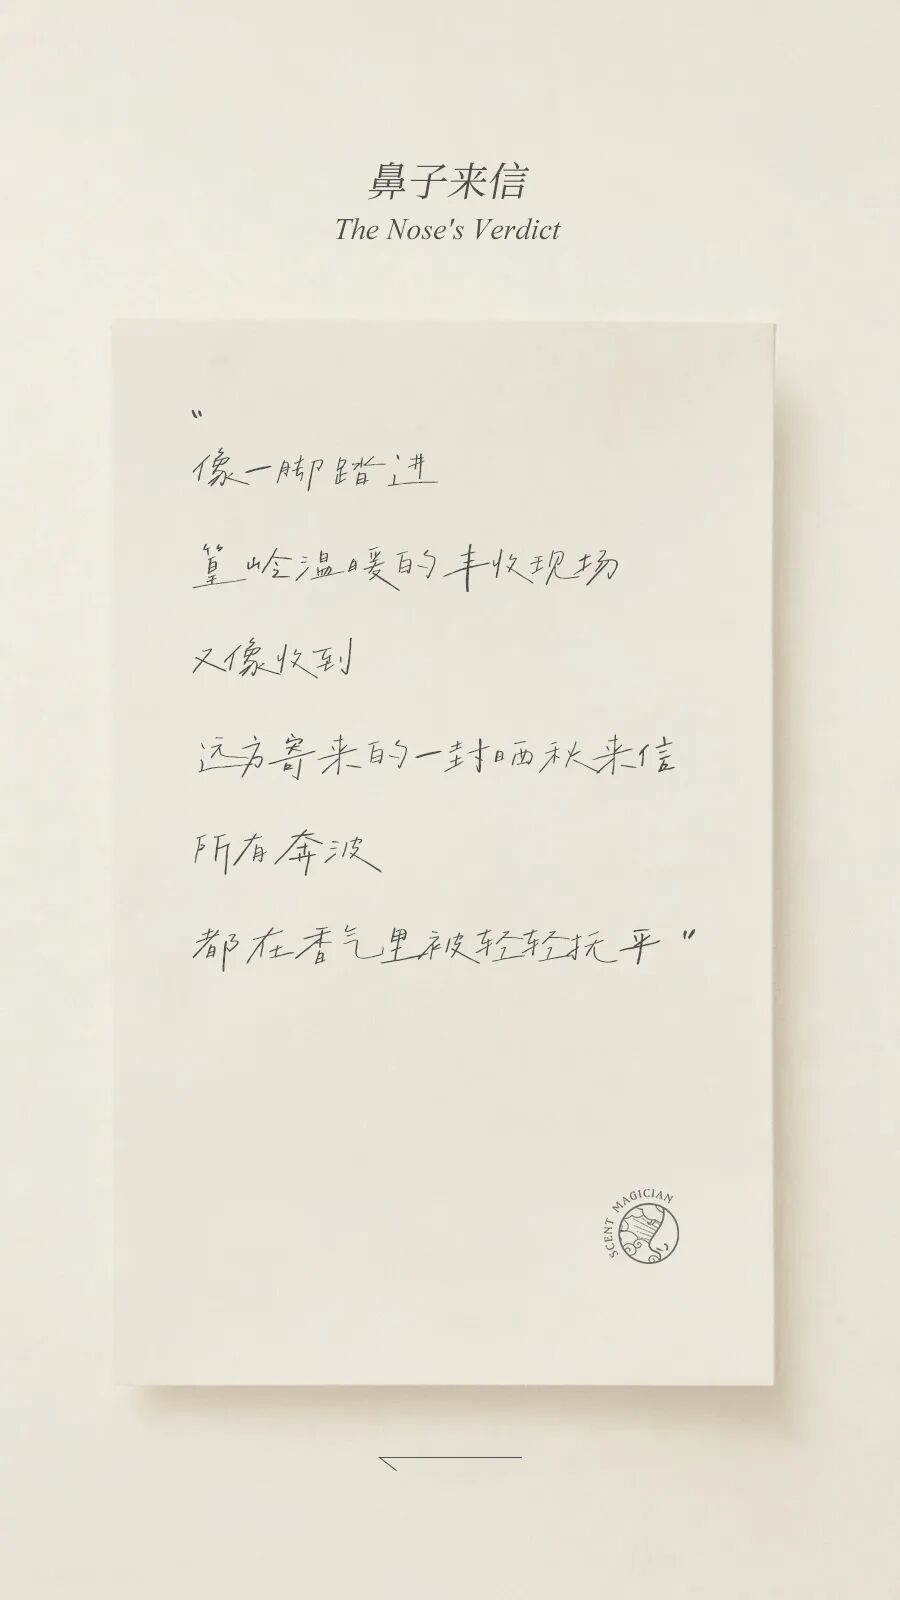 鼻子来信
The Nose's Verdict
"
像一脚踏进
篁岭温暖的丰收现场
又像收到
远方寄来的一封晒秋来信
所有奔波
都在香气里被轻轻抚平"
SCENT MAGICIAN